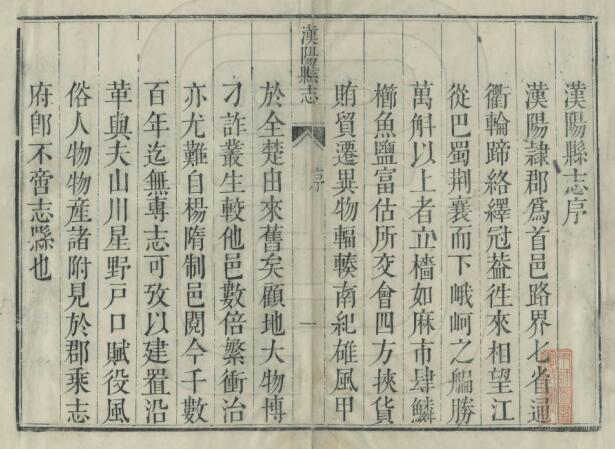 漢陽縣志序
漢陽隷郡爲首邑路界七省通
衢輪蹄絡繹冠葢徃來相望江
從巴蜀荆襄而下峨舸之艑勝
萬斛以上者立檣如麻市肆鱗
櫛魚鹽富估所交會四方挾貨
賄貿遷異物輻輳南紀雄風甲
漢陽縣志
序
一
於全楚由來舊矣顧地大物博
刁詐叢生較他邑數倍繁衝治
亦尤難自楊隋制邑閱今千數
百年迄無專志可攷以建置沿
革與夫山川星野戸口賦役風
俗人物物産諸附見於郡乘志
府卽不啻志縣也